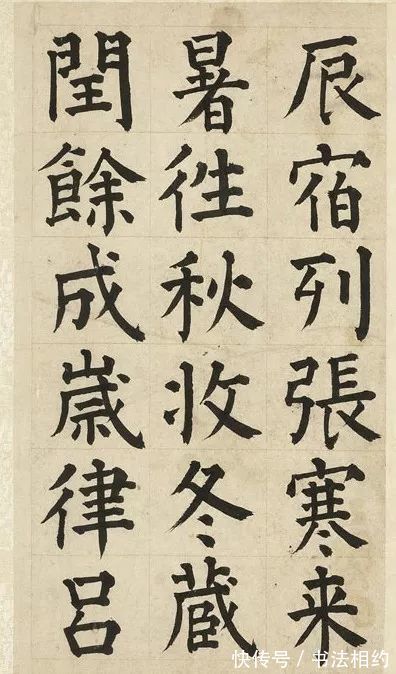 辰宿列張寒来
暑徃秋收冬蔵
閏餘成歳律呂
快传号/书法相约